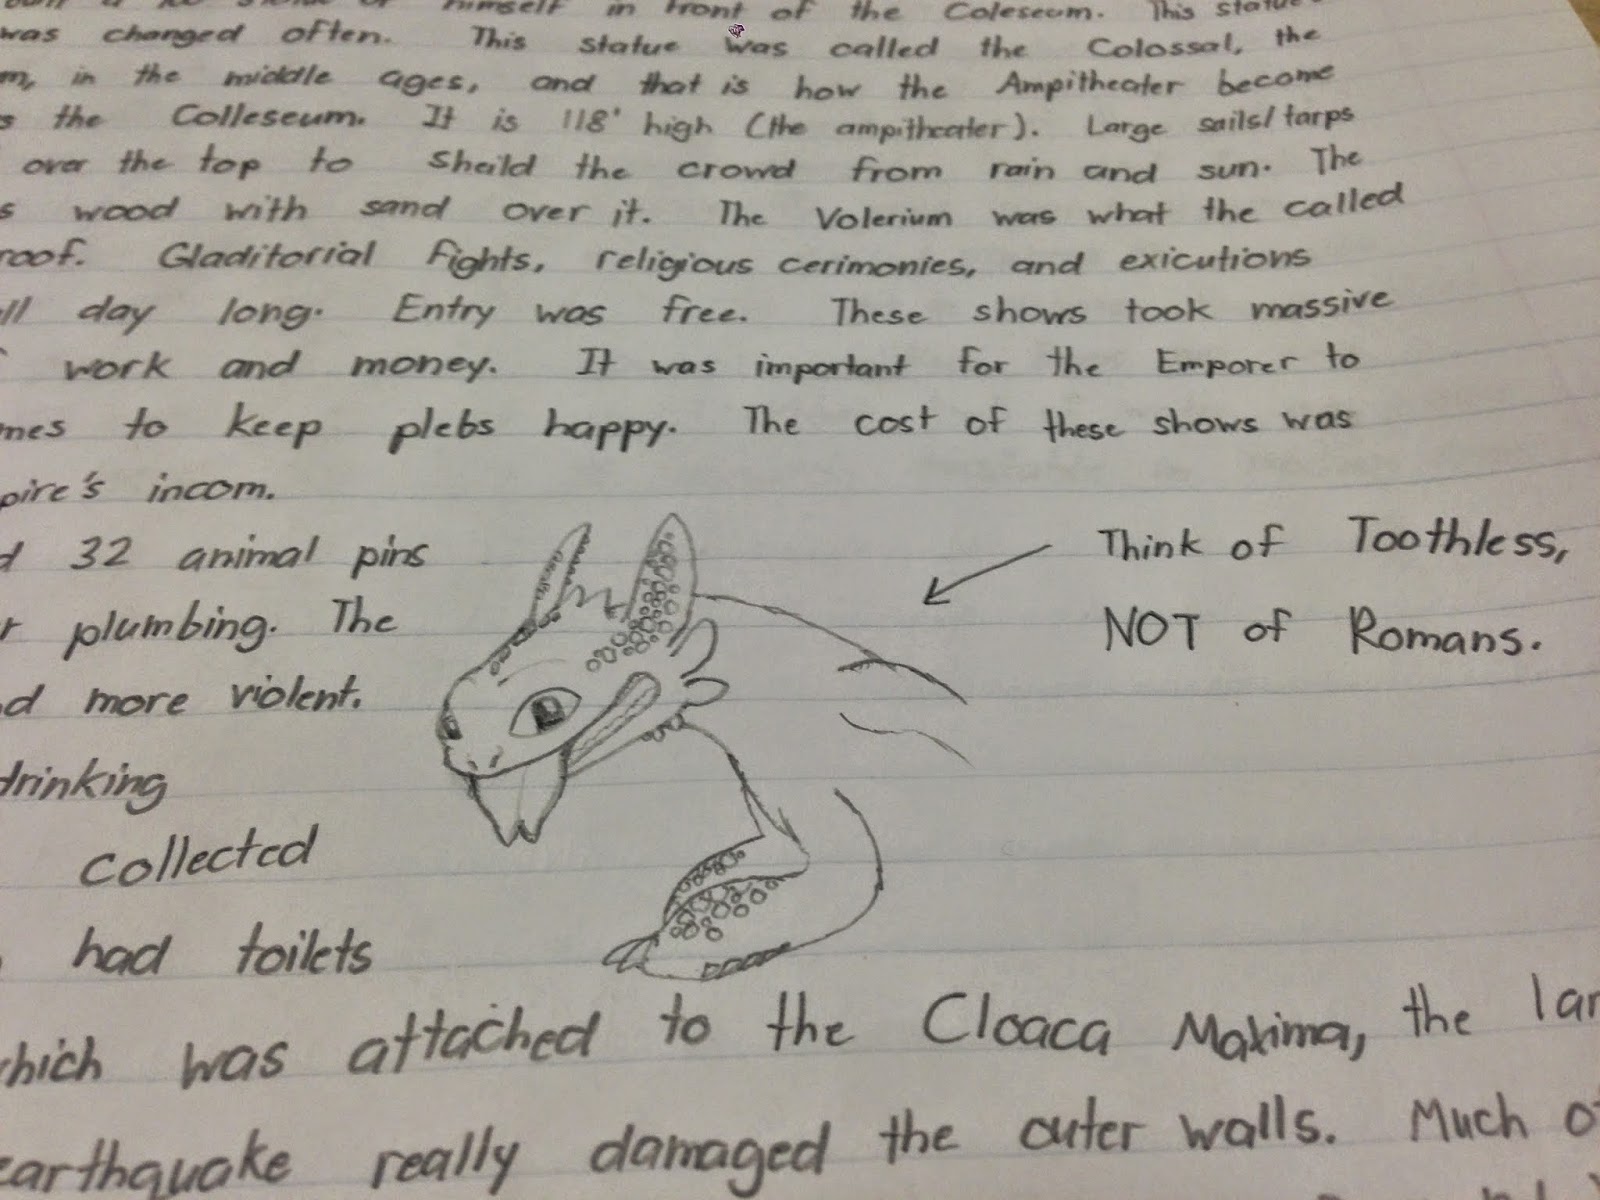 himself in front of the Coleseum. This statue
was changed often. This statue was called the Colossal, the
in the middle ages, and that is how the Ampitheater become
the Colleseum. It is 118' high (the ampitheater). Large sails/tarps
over the top to sheild the crowd from rain and sun. The
wood with sand over it. The Volerium was what the called
roof. Gladitorial fights, religious cerimonies, and exicutions
day long. Entry was free. These shows took massive
work and money. It was important for the Emporer to
to keep plebs happy. The cost of these shows was
incom.
32 animal pins
plumbing. The
more violent.
drinking
collected
had toilets
Think of Toothless,
NOT of Romans.
was attached to the Cloaca Maxima, the
earthquake really damaged the outer walls. Much